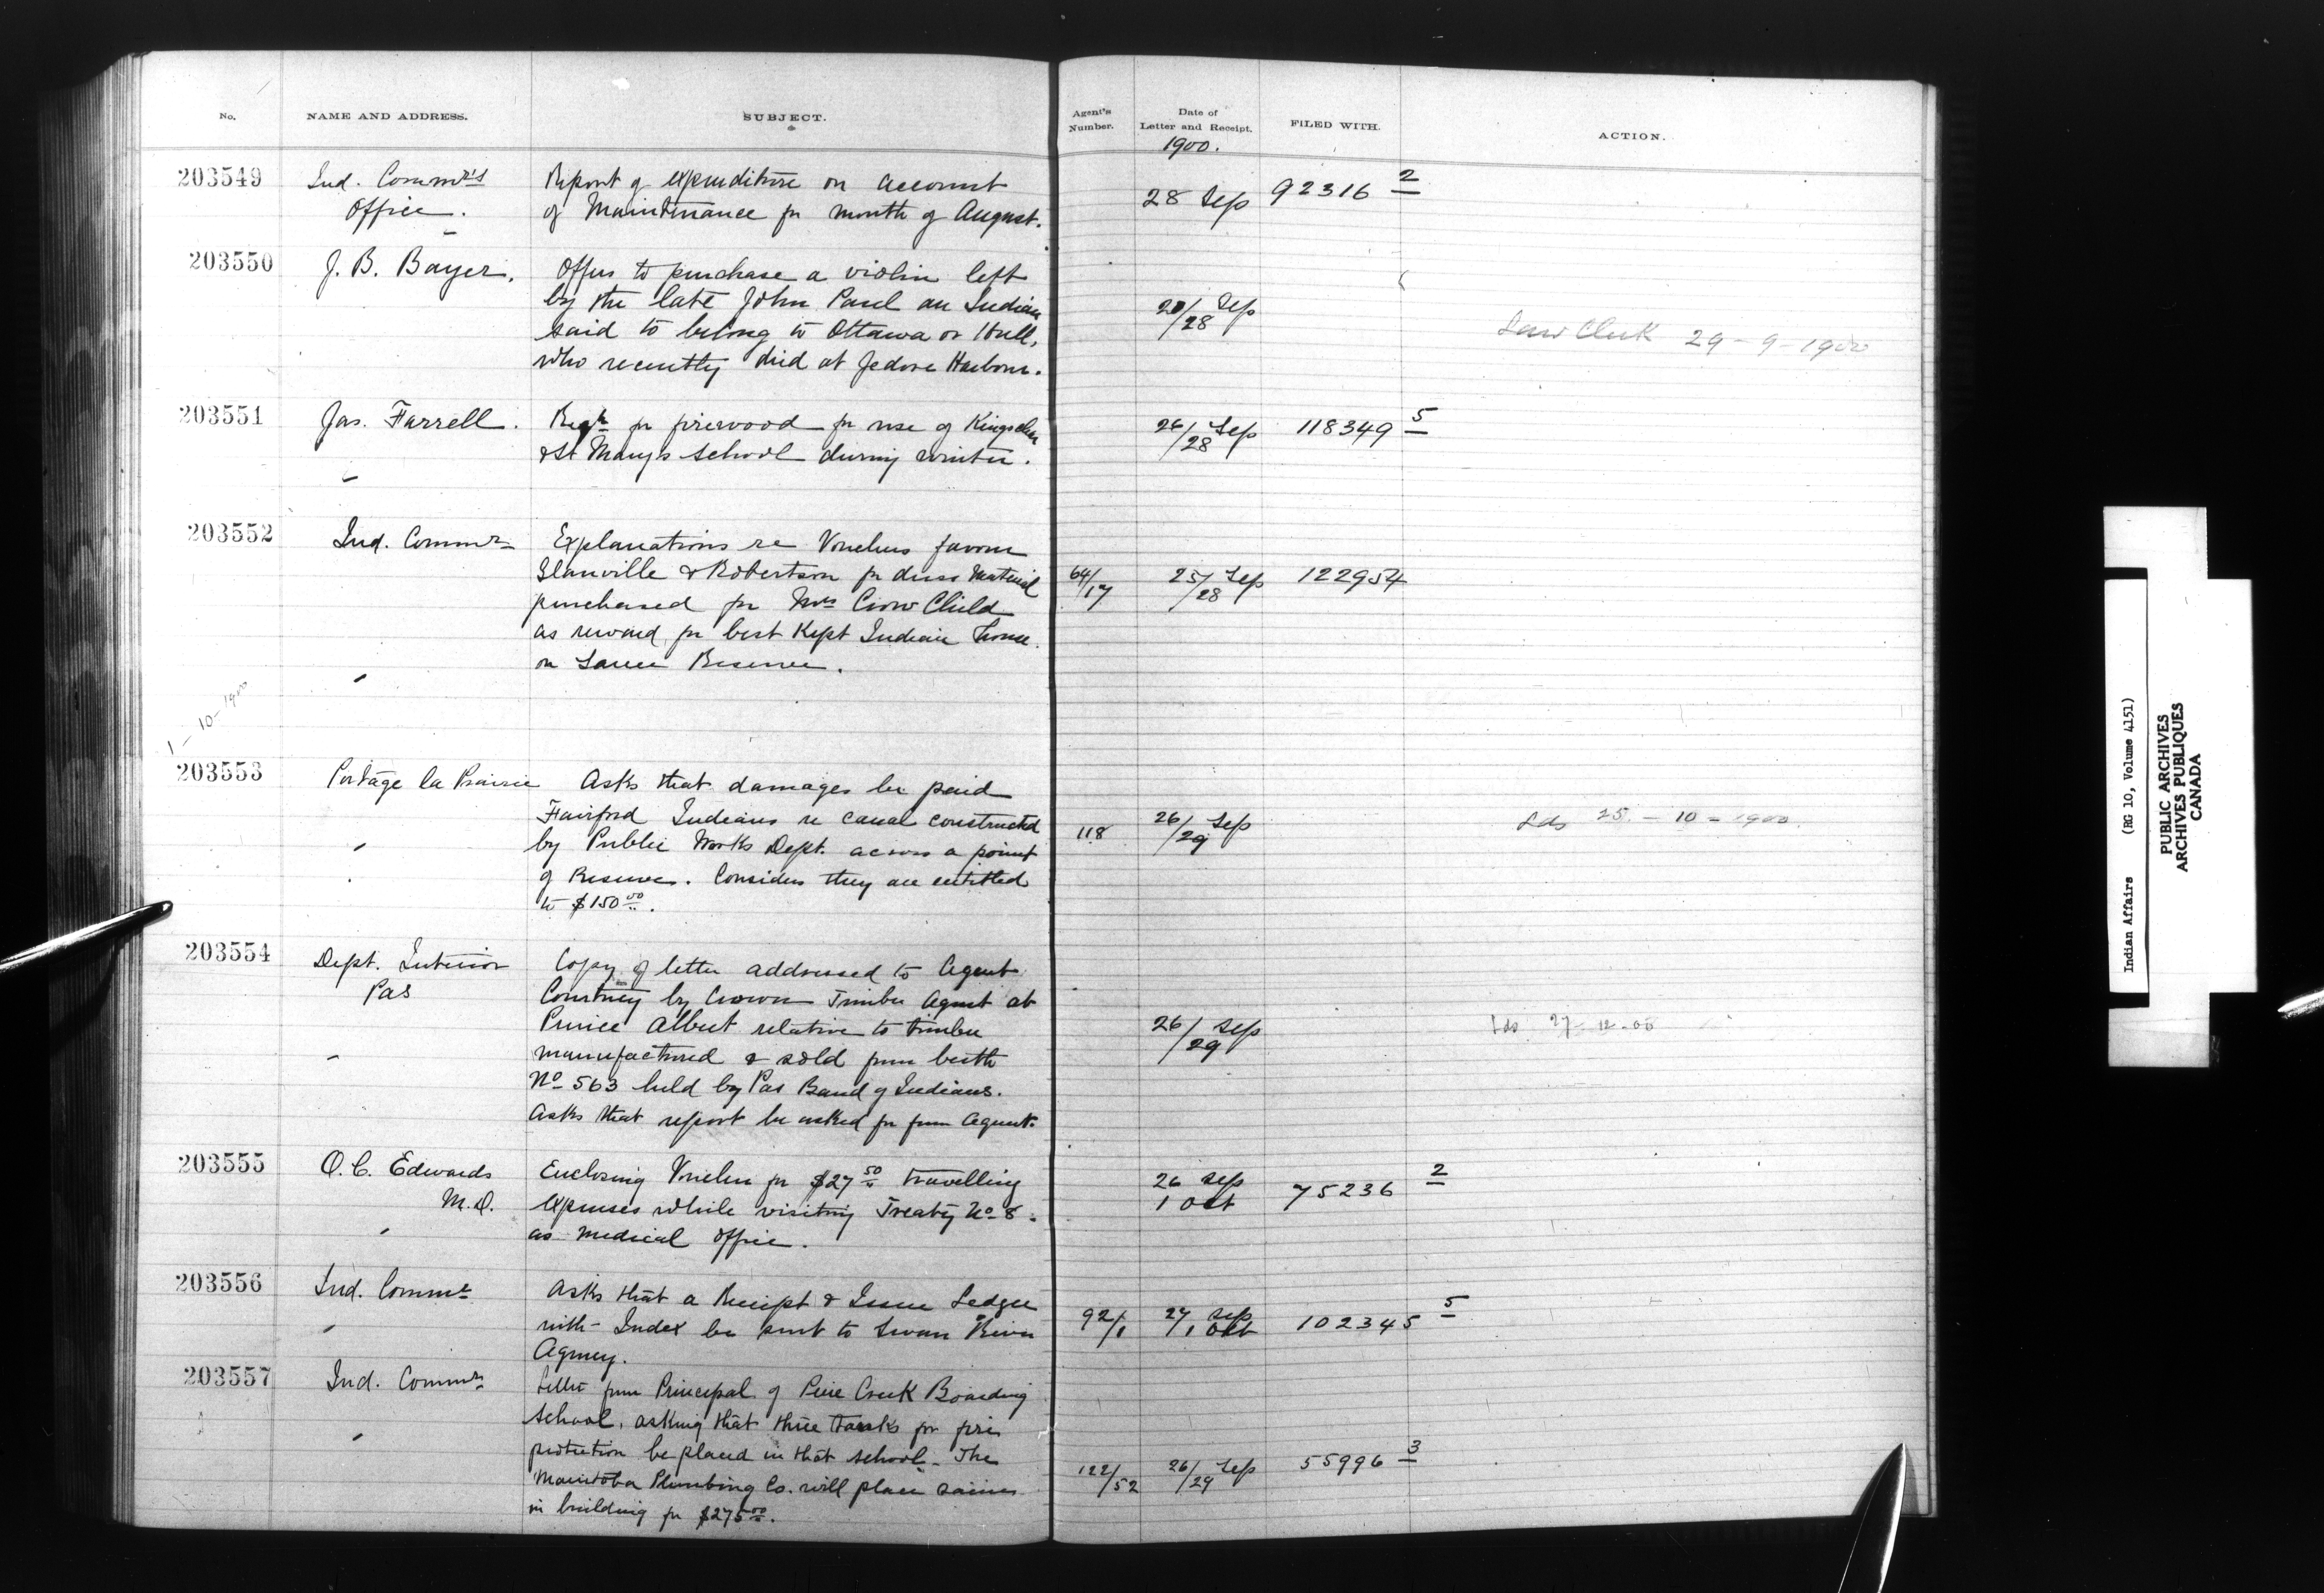 No.
NAME AND ADDRESS.
SUBJECT.
Agent's Number.
Date of Letter and Receipt.
FILED WITH.
ACTION.
1900.
203549
Ind. Commr's
Office.
Report of expenditure on account
of Maintenance for month of August.
28 Sep
92316 2
203550
J. B. Bayer.
Offers to purchase a violin left
by the late John Paul an Indian
said to belong to Ottawa or Hull,
who recently died at Jedore Harbour.
/28 Sep
Law Clerk 29-9-1900
203551
Jas. Farrell.
for firewood for use of Kingsclear
& St Mary's School during winter.
26/28 Sep
118349 5
203552
Ind. Commr
Explanations re Vouchers favour
Glanville & Robertson for dress Material
purchased for Mrs Crow Child
as reward for best Kept Indian house
on Sarcee Reserve.
64/17
25/28 Sep
122954
1-10-1900
203553
Portage la Prairie
Asks that damages be paid
Fairford Indians re canal constructed
by Public Works Dept. across a point
of Reserve. Considers they are entitled
to $150 00.
118
26/29 Sep
Lds 25-10-1900.
203554
Dept. Interior
Pas
Copy of letter addressed to Agent
Courtney by Crown Timber Agent at
Prince Albert relative to timber
manufactured & sold from berth
No 563 held by Pas Band of Indians.
Asks that report be asked for from Agent.
26/29 Sep
Lds 27-12-00
203555
O. C. Edwards
M.D.
Enclosing Voucher for $27 50 travelling
expenses while visiting Treaty No 8
as medical officer.
26 Sep
1 Oct
75236 2
203556
Ind. Commr
Asks that a Receipt & Issue Ledger
with Index be sent to Swan River
Agency.
92/1
27 Sep
/1 Oct
102345 5
203557
Ind. Commr
Letter from Principal of Pine Creek Boarding
School, asking that three tanks for fire
protection be placed in that school. The
Manitoba Plumbing Co. will place same
in building for $275 00.
122/52
26/29 Sep
55996 3
Indian Affairs (RG 10, Volume 4151)
PUBLIC ARCHIVES
ARCHIVES PUBLIQUES
CANADA